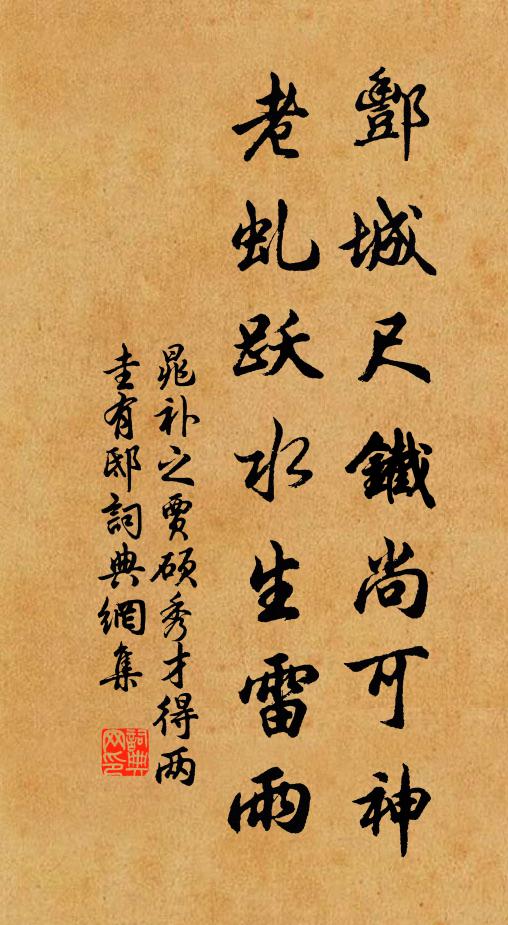 酆城尺鐵尚可神
老虬跃水生雷雨
晁补之贾硕秀才得两
圭有邸詞典網集
詞典
网印